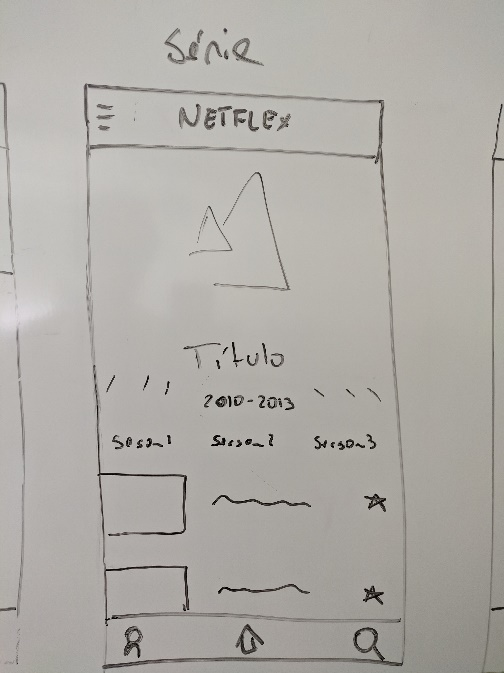 Série
NETFLEX
Título
2010-2013
Season1 Season2 Season3